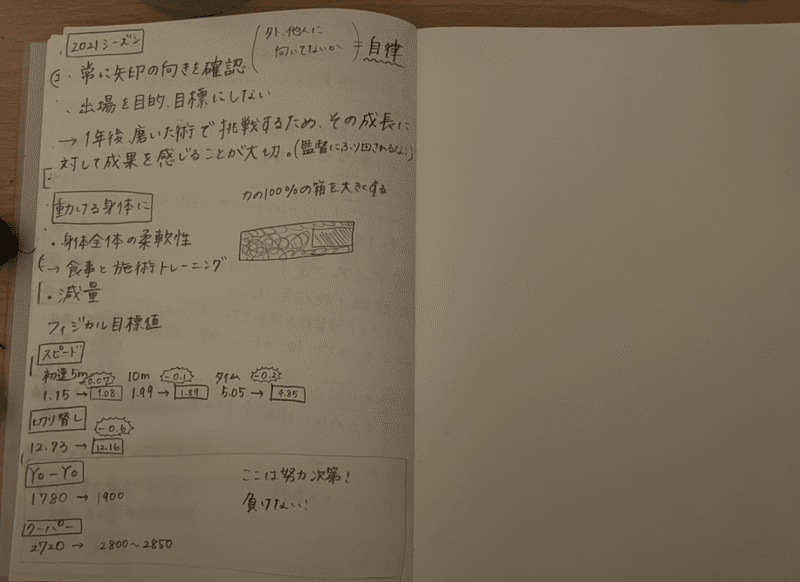 2021シーズン
・常に矢印の向きを確認 (外、他人に向いてないか) = 自律
・出場を目的、目標にしない
→ 1年後、磨いた術で挑戦するため、その成長に
対して成果を感じることが大切。(監督にふり回されるな!)
動ける身体に
力の100%の箱を大きくする
・身体全体の柔軟性
→ 食事と施術トレーニング
・減量
フィジカル目標値
スピード
初速5m -0.07 10m -0.1 タイム -0.2
1.15 → 1.08 1.99 → 1.89 5.05 → 4.85
切り替し -0.6
12.73 → 12.16
Yo-Yo ここは努力次第!
1780 → 1900 負けない!
クーパー
2720 → 2800~2850